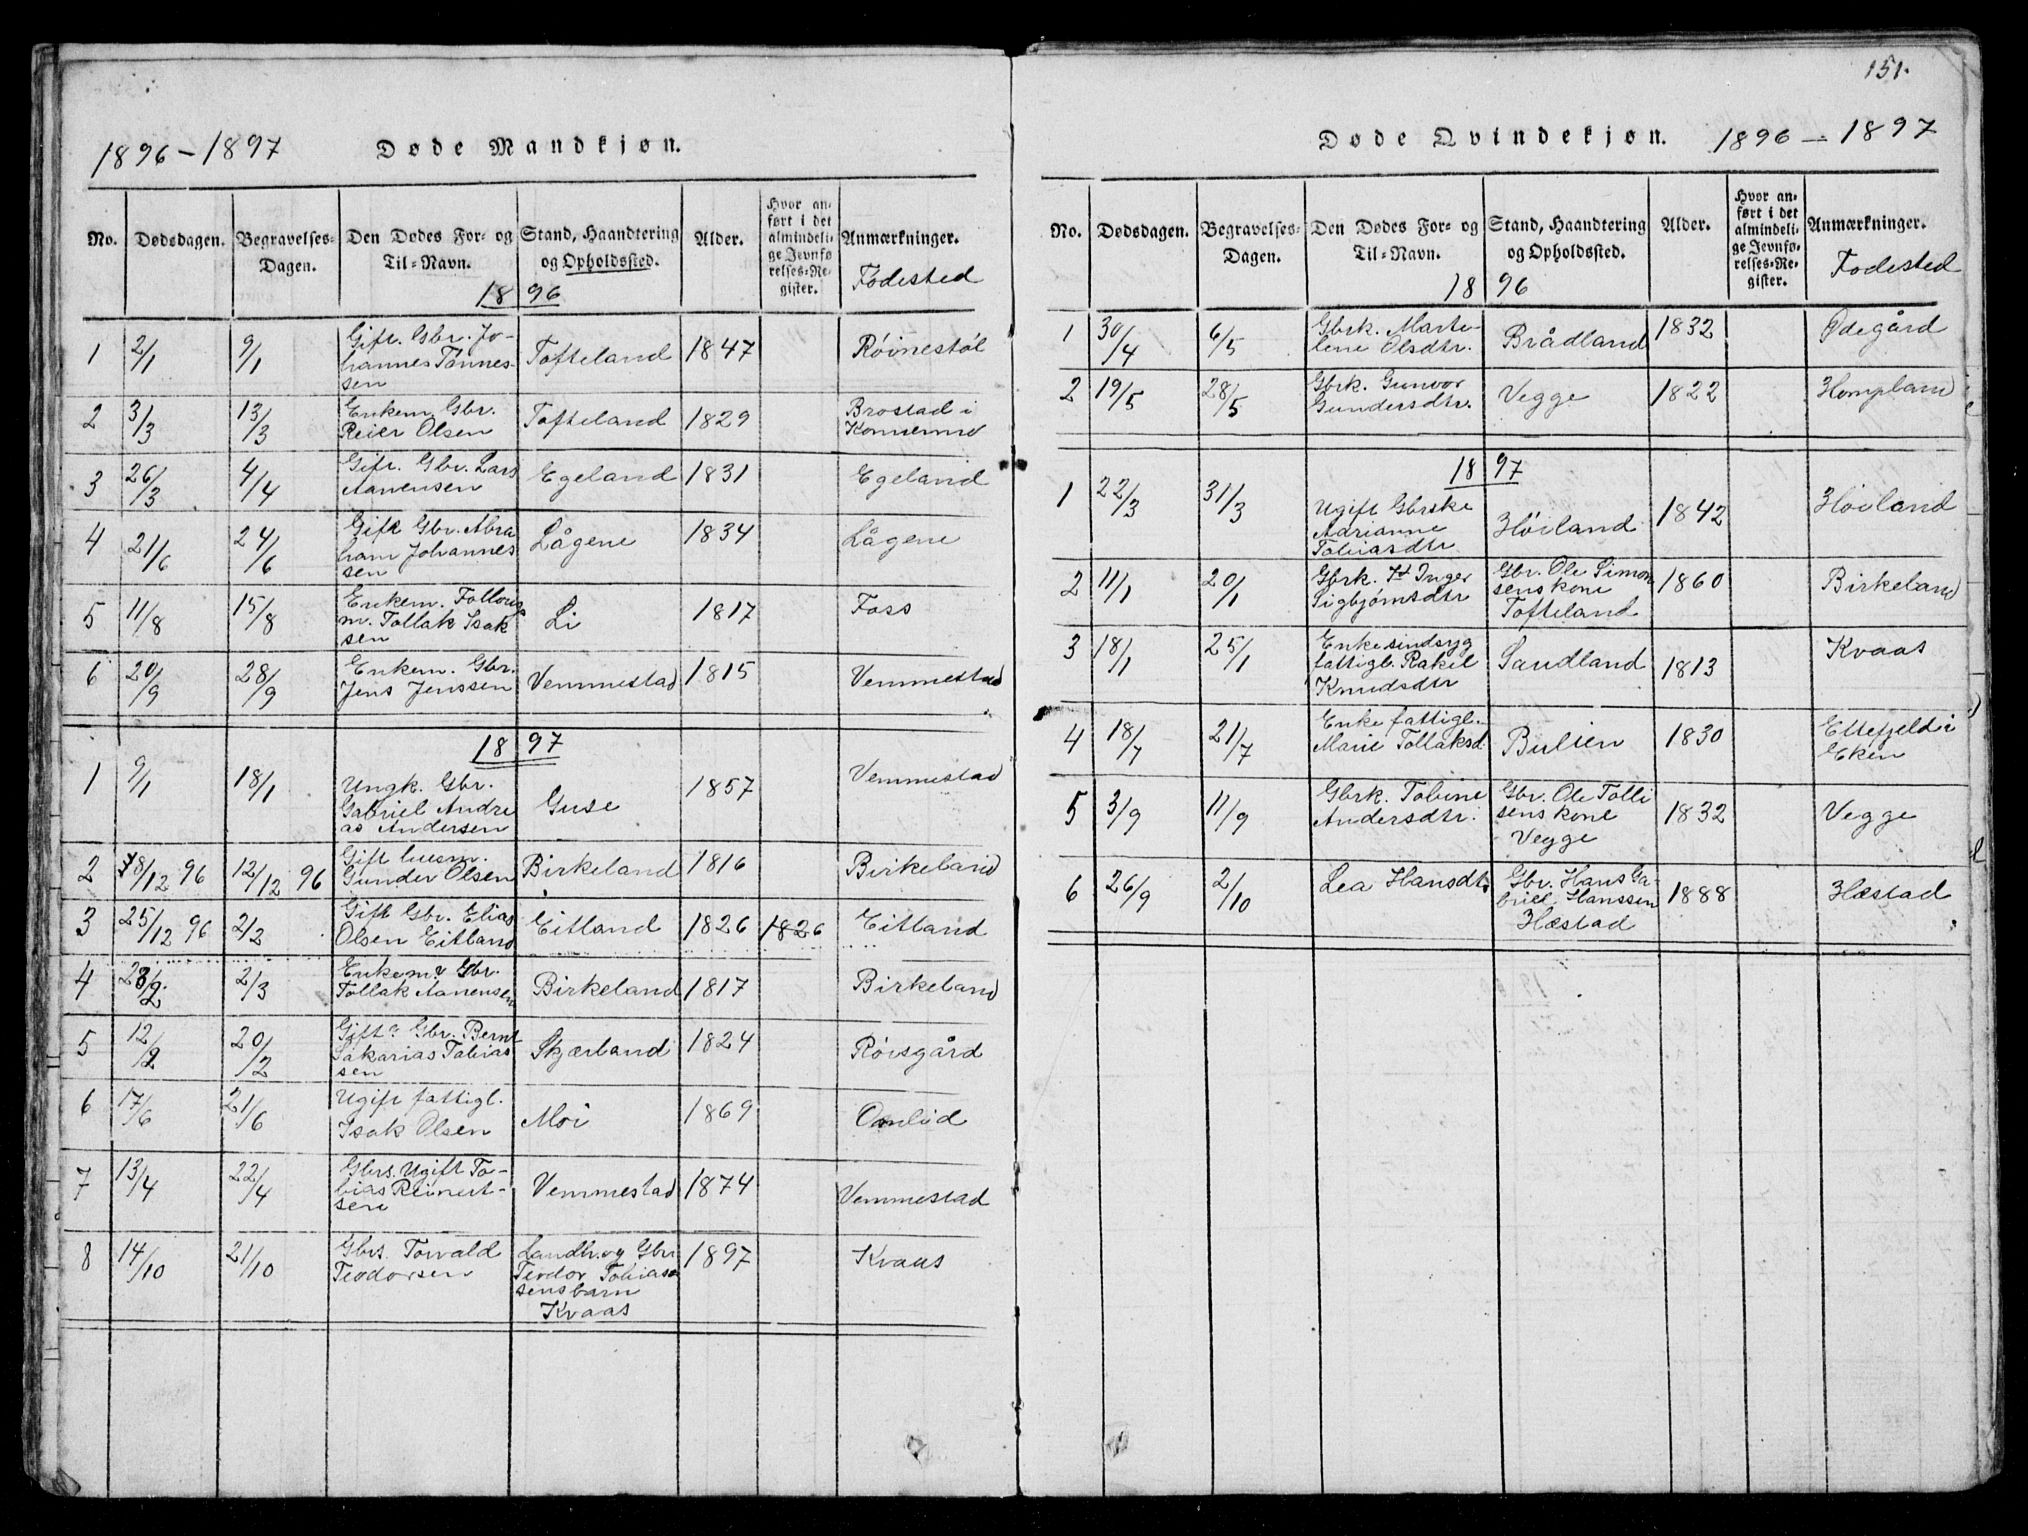 1896-1897 Døde Mandkjøn.
No. Dødsdagen. Begravelses-Dagen. Den Dødes For- og Til-Navn. Stand, Haandtering og Opholdssted. Alder. Hvor anført i det almindelige Jevnførelses-Register. Anmærkninger. Fødested
1896
1 2/1 9/1 Gift. Gbr. Johannes Tønnessen Tofteland 1847 Røinestøl
2 3/3 13/3 Enkem. Gbr. Reier Olsen Tofteland 1829 Brostad i
3 26/3 4/4 Gift. Gbr. Lars Aanensen Egeland 1831 Egeland
4 21/6 24/6 Gift Gbr. Abraham Johannessen Lågene 1834 Lågene
5 11/8 15/8 Enkem. m. Tollak Isaksen Li 1817 Foss
6 20/9 28/9 Enkem. Gbr. Jens Jenssen Vemmestad 1815 Vemmestad
1897
1 9/1 18/1 Ungk. Gbr. Gabriel Andreas Andersen Guse 1857 Vemmestad
2 8/12 96 12/12 96 Gift Gunder Olsen Birkeland 1816 Birkeland
3 25/12 96 2/2 Gift Gbr. Elias Olsen Eitland Eitland 1826 1826 Eitland
4 2/3 Enkem. Gbr. Tollak Aanensen Birkeland 1817 Birkeland
5 12/2 20/2 Gift Gbr. Bernt Sakarias Tobiassen Skjærland 1824 Røisgård
6 17/6 21/6 Ugift fattigl. Isak Olsen Moi 1869 Omlid
7 13/4 22/4 Gbrs. Ugift Tobias Reinertsen Vemmestad 1874 Vemmestad
8 14/10 21/10 Gbrs. Torvald Teodorsen Landh. og Gbr. Teodor Tobiassens barn Kvaas 1897 Kvaas
151.
Døde Qvindekjøn. 1896-1897
No. Dødsdagen. Begravelses-Dagen. Den Dødes For- og Til-Navn. Stand, Haandtering og Opholdssted. Alder. Hvor anført i det almindelige Jevnførelses-Register. Anmærkninger. Fødested
1896
1 30/4 6/5 Gbrk. Martelene Olsdtr. Brådland 1832 Ødegård
2 19/5 28/5 Gbrk. Gunvor Gundersdtr. Vegge 1822 Hompland
1897
1 22/3 31/3 Ugift Gbrske Adrianne Tobiasdtr Høiland 1842 Høiland
2 11/1 20/1 Gbrk. Inger Sigbjørnsdtr Gbr. Ole Simonsens kone Tofteland 1860 Birkeland
3 18/1 25/1 Enke sindsyg fattigl. Rakil Knudsdtr Sandland 1813 Kvaas
4 18/7 21/7 Enke fattigl. Marie Tollaksd. Bulien 1830 Ettefjeld i Eken
5 3/9 11/9 Gbrk. Tobine Andersdtr. Gbr. Ole Tollisens kone Vegge 1832 Vegge
6 26/9 2/10 Lea Hansdtr Gbr. Hans Gabriel Hanssen Hæstad 1888 Hæstad